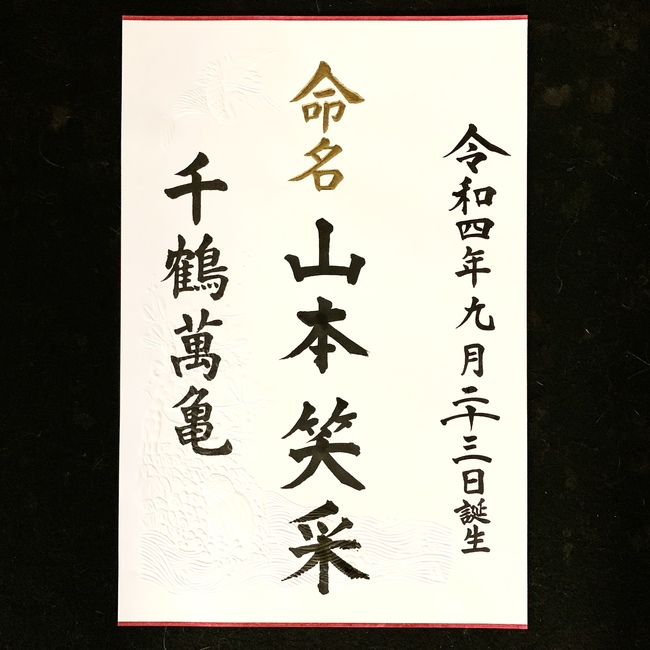 令和四年九月二十三日誕生
命名
山本笑采
千鶴萬亀